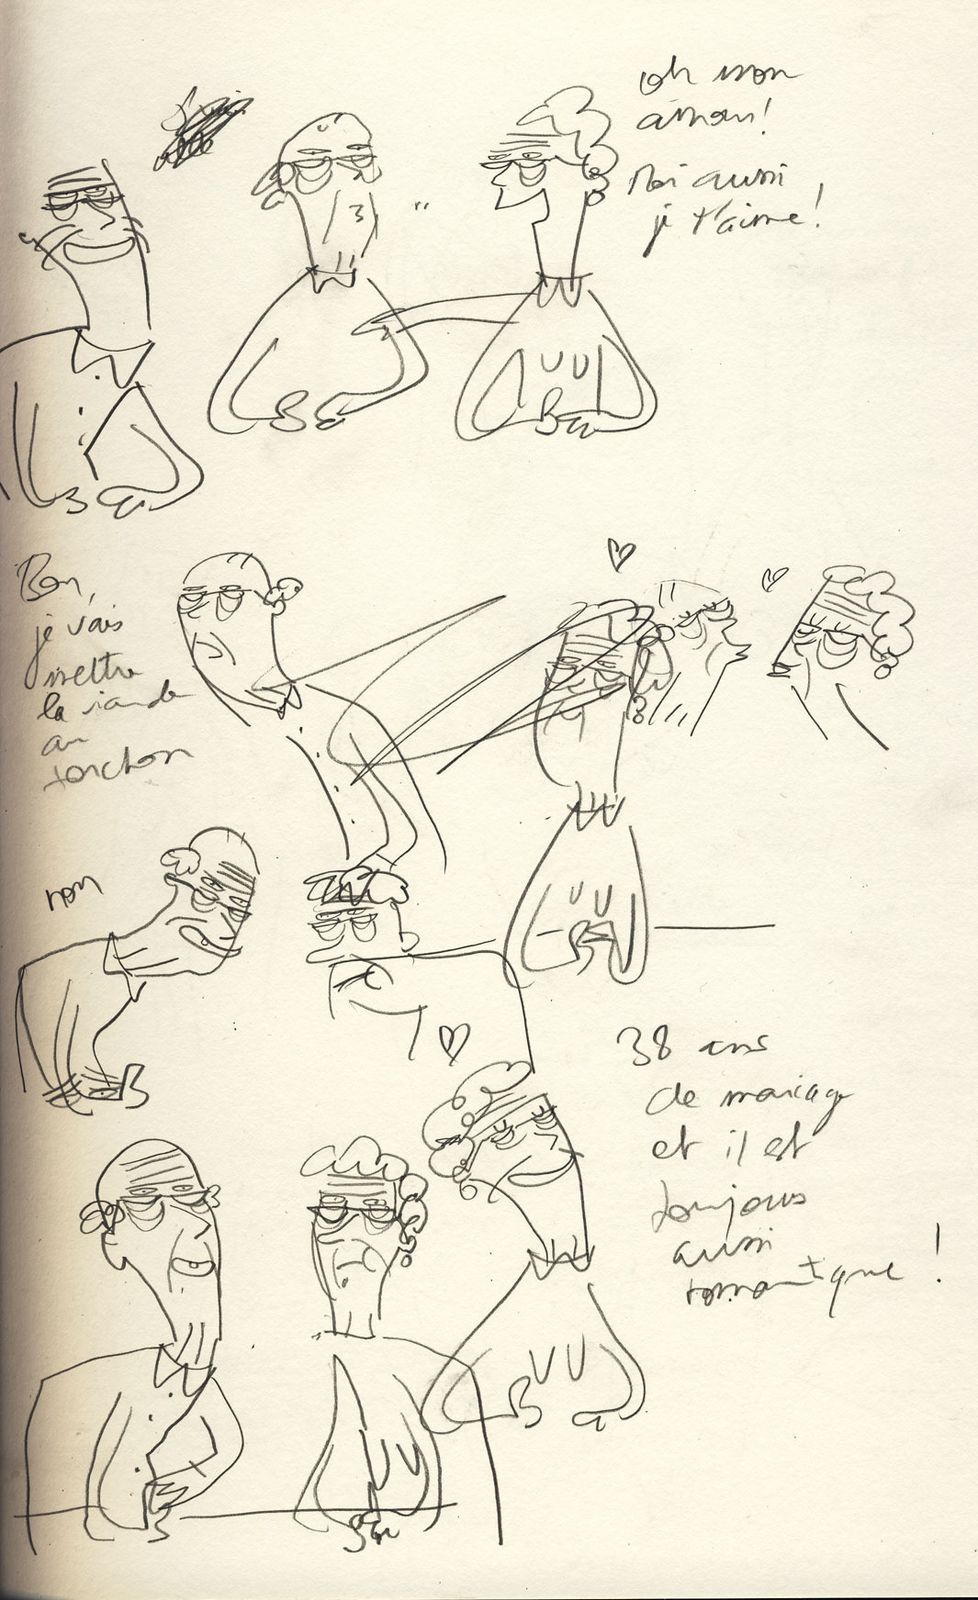 oh mon
amour!
Moi aussi
je t'aime!
Bon,
je vais
mettre
la viande
au
torchon
non
38 ans
de mariage
et il est
toujours
aussi
romantique !